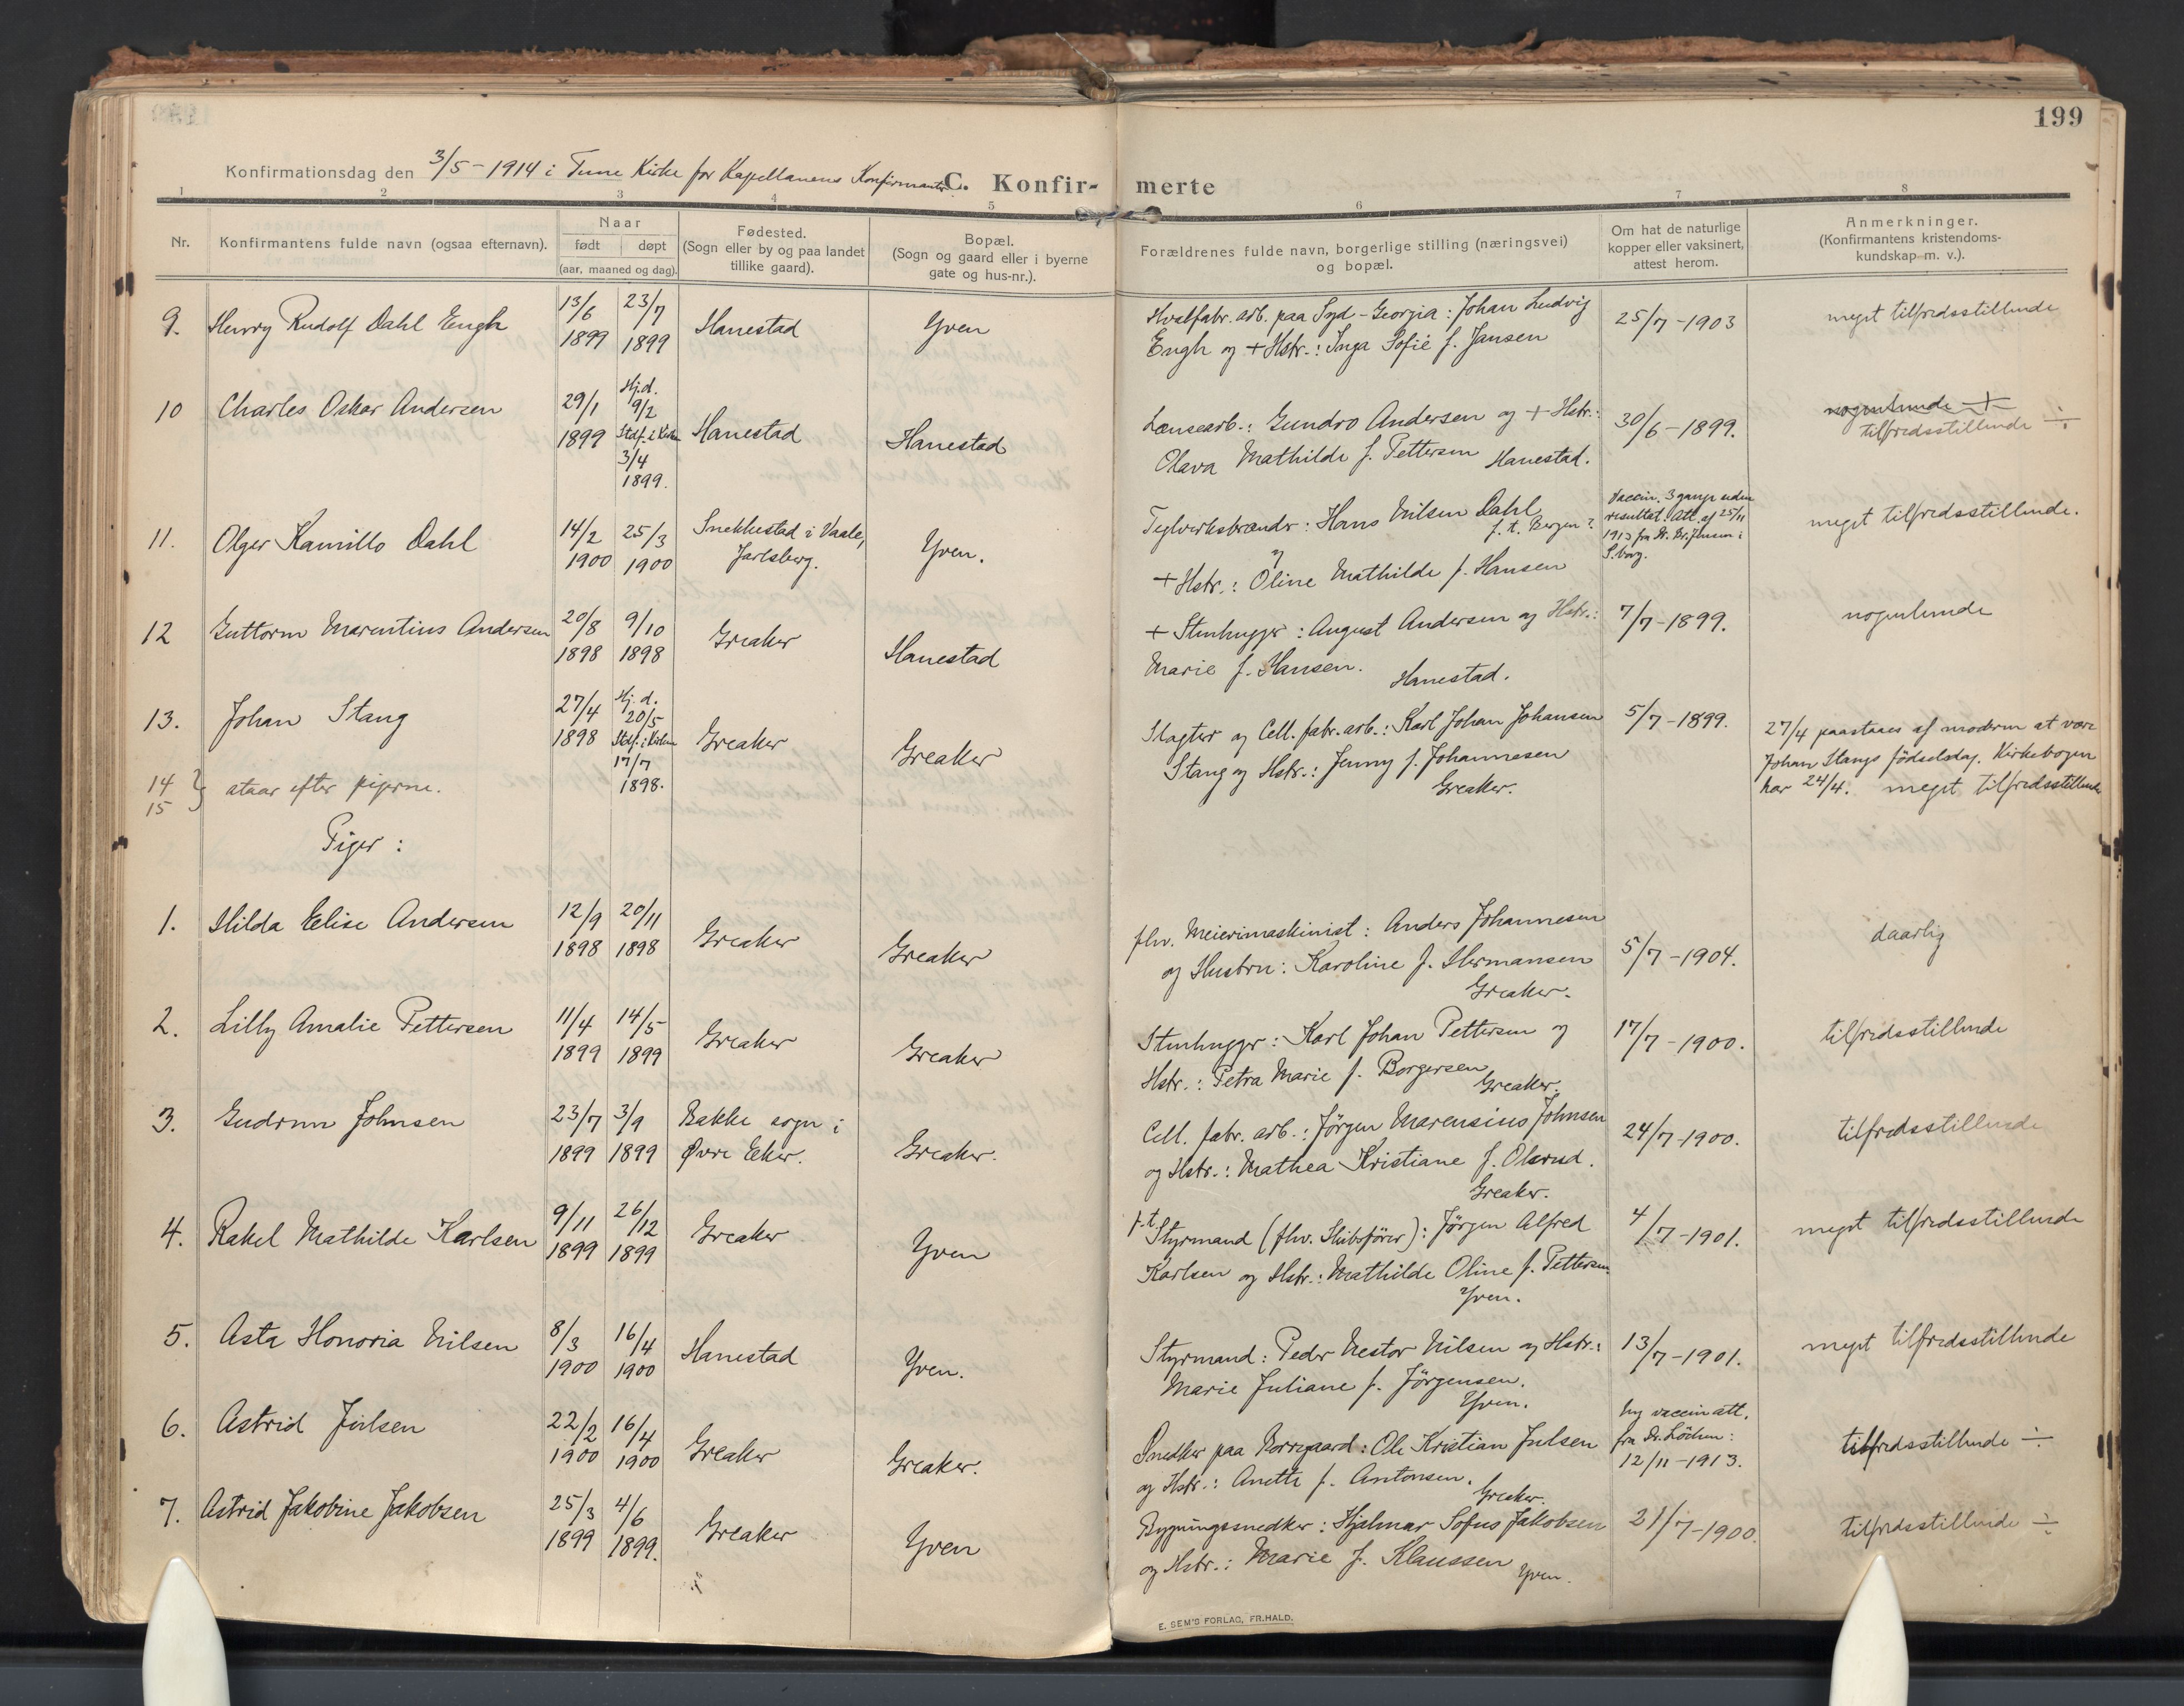 199
Konfirmationsdag den 3/5 - 1914 i Tune Kirke for Kapellanens Konfirmanter. C. Konfir- merte
1 2 3 4 5 6 7 8
Nr. Konfirmantens fulde navn (ogsaa efternavn).
Naar
født døpt
(aar, maaned og dag).
Fødested.
(Sogn eller by og paa landet
tillike gaard).
Bopæl.
(Sogn og gaard eller i byerne
gate og hus-nr.).
Forældrenes fulde navn, borgerlige stilling (næringsvei)
og bopæl.
Om hat de naturlige
kopper eller vaksinert,
attest herom.
Anmerkninger.
(Konfirmantens kristendoms-
kundskap m. v.).
9. Henry Rudolf Dahl Engh
13/6 1899
23/7 1899
Hanestad
Yven
Hvalfabr. arb. paa Syd-Georgia: Johan Ludvig
Engh og + Hstr.: Inga Sofie f. Jansen
25/7 - 1903
meget tilfredsstillende
10 Charles Oskar Andersen
29/1 1899
Hj.d.
9/2
Stdf. i Kirken
3/4
1899.
Hanestad
Hanestad
Lænsearb.: Gundro Andersen og + Hstr.:
Olava Mathilde f. Pettersen Hanestad.
30/6 - 1899.
nogenlunde +
tilfredsstillende ÷
11. Olger Kamillo Dahl
14/2 1900
25/3 1900
Snekkestad i Vaale,
Jarlsberg.
Yven.
Teglverksbrænder: Hans Nilsen Dahl
f. t. Bergen?
og
+ Hstr.: Oline Mathilde f. Hansen
Vaccin. 3 gange uden
resultat. Att. af 25/11
1913 fra Dr. Br. Jensen i
S.borg.
meget tilfredsstillende.
12 Guttorm Marentius Andersen
20/8 1898
9/10 1898
Greaker
Hanestad
+ Stenhugger: August Andersen og Hstr.:
Marie f. Hansen.
Hanestad.
7/7 - 1899.
nogenlunde
13. Johan Stang
27/4 1898
Hj. d.
20/5
Stdf. i Kirken
17/7
1898.
Greaker
Greaker
Slagter og Cell. fabr. arb.: Karl Johan Johansen
Stang og Hstr.: Jenny f. Johannesen
Greaker.
5/7 - 1899.
27/4 paastaaes af moderen at være
Johan Stangs födselsdag. Kirkebogen
har 24/4. meget tilfredsstillende
14 } staar efter pigerne.
15
Piger:
1. Hilda Elise Andersen
12/9 1898
20/11 1898
Greaker
Greaker
fhv. Meierimaskinist: Anders Johannesen
og Hustru: Karoline f. Hermansen
Greaker.
5/7 - 1904.
daarlig
2. Lilly Amalie Pettersen
11/4 1899
14/5 1899
Greaker
Greaker
Stenhugger: Karl Johan Pettersen og
Hstr.: Petra Marie f. Borgersen
Greaker.
17/7 - 1900.
tilfredsstillende
3. Gudrun Johnsen
23/7 1899
3/9 1899
Bakke sogn i
Øvre Eker.
Greaker.
Cell. fabr. arb.: Jørgen Marensius Johnsen
og Hstr.: Mathea Kristiane f. Olsrud.
Greaker.
24/7 - 1900.
tilfredsstillende
4. Rakel Mathilde Karlsen
9/11 1899
26/12 1899
Greaker
Yven
f.t. Styrmand (fhv. Skibsfører): Jørgen Alfred
Karlsen og Hstr.: Mathilde Oline f. Pettersen
Yven.
4/7 - 1901.
meget tilfredsstillende
5. Asta Honoria Nilsen
8/3 1900
16/4 1900
Hanestad
Yven.
Styrmand: Peder Nestor Nilsen og Hstr.:
Marie Juliane f. Jörgensen.
Yven.
13/7 - 1901.
meget tilfredsstillende
6. Astrid Julsen
22/2 1900
16/4 1900
Greaker
Greaker.
Snedker paa Borregaard: Ole Kristian Julsen
og Hstr.: Anette f. Antonsen.
Greaker.
ny vaccinatt.
fra Dr. Löchen:
12/11 - 1913.
tilfredsstillende ÷
7. Astrid Jakobine Jakobsen
25/3 1899
4/6 1899.
Greaker
Yven
Bygningssnedker: Hjalmar Sofus Jakobsen
og Hstr.: Marie f. Klaussen Yven.
21/7 - 1900.
tilfredsstillende ÷
E. SEM'S FORLAG, FR.HALD.